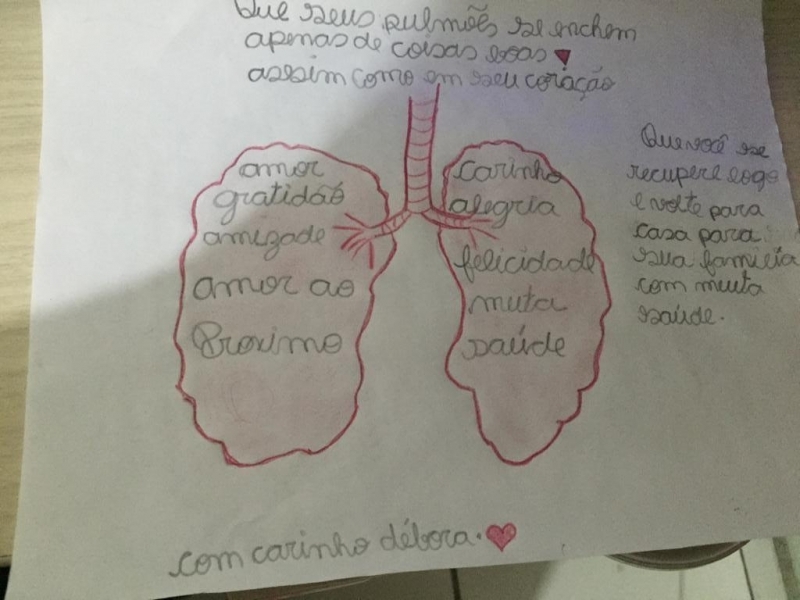 Que seus pulmões se enchem
apenas de coisas boas
assim como em seu coração
amor
gratidão
amizade
amor ao
Proximo
carinho
alegria
felicidade
muta
saúde
Que você se
recupere logo
e volte para
casa para
sua família
com muita
saúde.
com carinho débora.